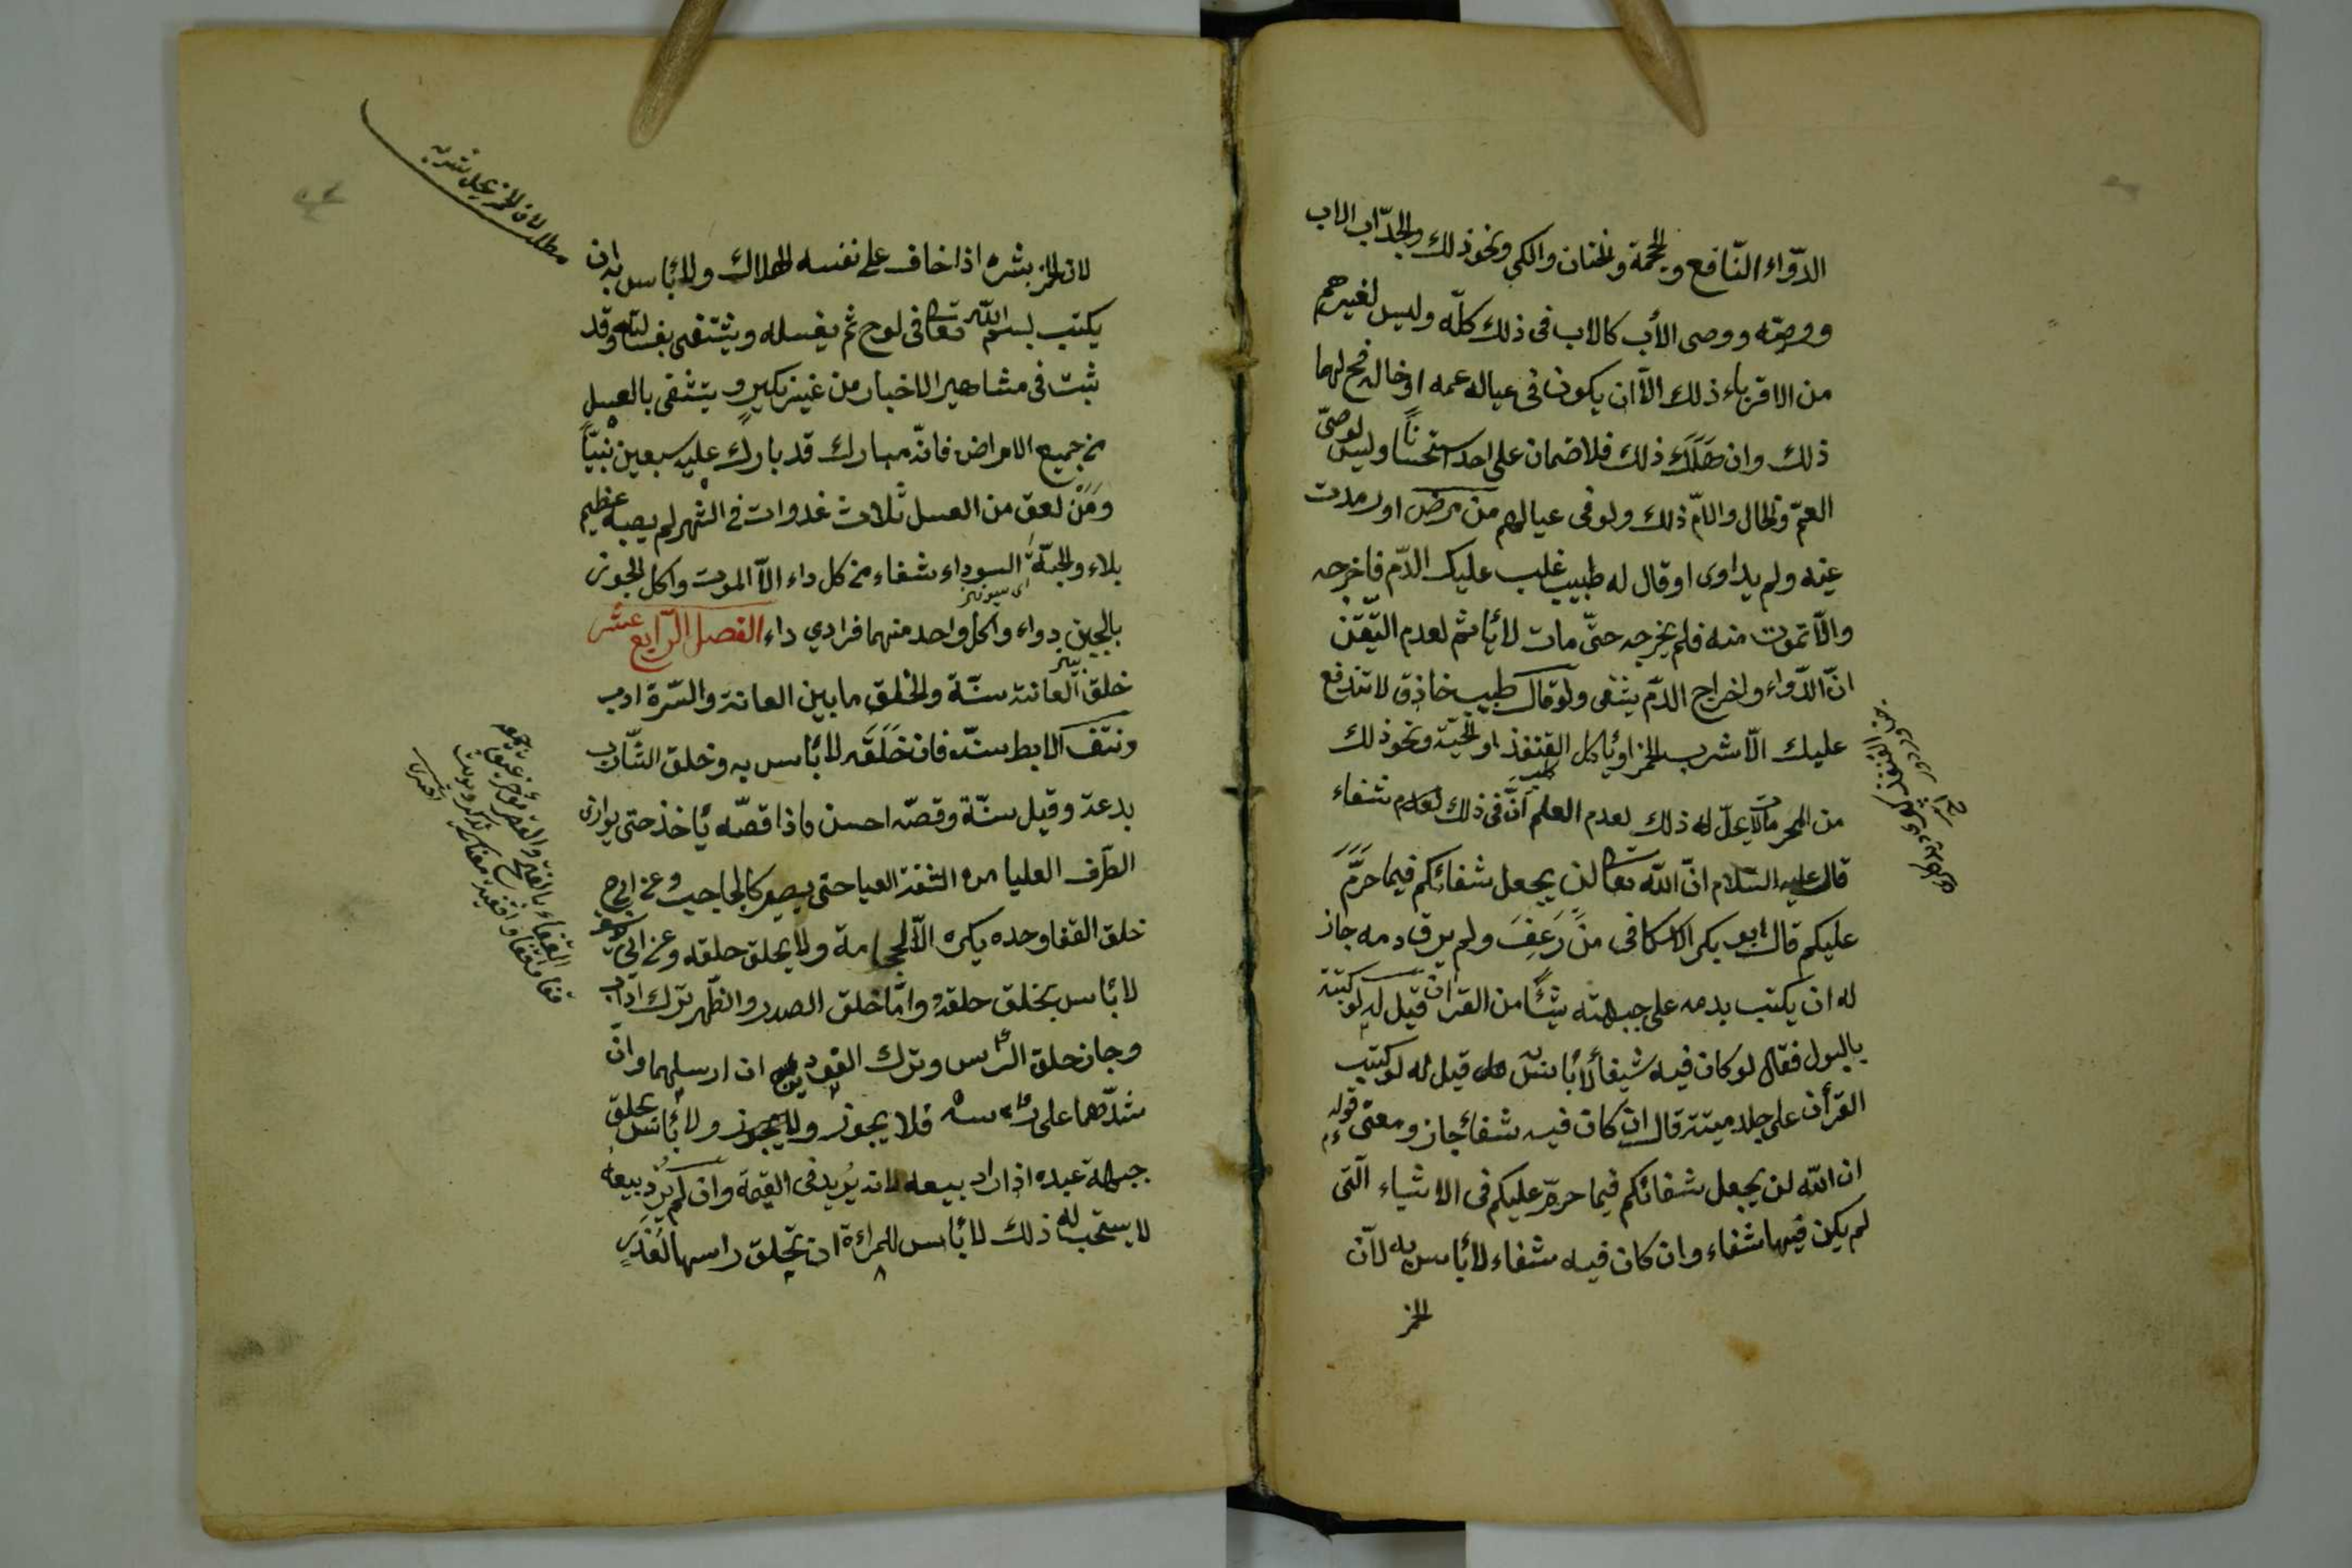 الدّواء النّافع والحجمة والختان والكي ونحو ذلك والجدّ اب الاب
ووصيّه ووصى الأب كالاب فى ذلك كلّه وليس لغيرهم
من الاقرباء ذلك الّا ان يكون فى عياله عمه او خاله فح لهما
ذلك وان هَلَكَ ذلك فلا ضمان على احد استحساناً وليس لوصىّ
العمّ والخال والامّ ذلك ولو فى عيالهم من مرض او رمدت
عينه ولم يداوى او قال له طبيب غلب عليك الدّم فاخرجه
والّا تموت منه فلم يخرجه حتّى مات لا يأثم لعدم التّيقّن
انّ الدّواء واخراج الدّم يشفى ولو قال طبيب حاذق لا تندفع
عليك الّا شرب الخمر او يأكل القنفذ او الحيّة ونحو ذلك
من المحرمات لا يحلّ له ذلك لعدم العلم انّ فى ذلك لعدم شفاء
قال عليه السّلام انّ اللّه تعالى لن يجعل شفائكم فيما حَرَّمَ
عليكم قال ابو بكر الاسكافى مَنْ رَعِفَ ولم يرق دمه جاز
له ان يكتب بدمه على جبهته شيئًا من القران قيل له لو كتبه
بالبول فقال لو كان فيه شيفاً لا بأس قيل له لو كتب
القرأن على جلد ميتة قال ان كان فيه شفاء جاز ومعنى قوله ءم
ان اللّه لن يجعل شفائكم فيما حرّم عليكم فى الاشياء الّتى
لم يكن فيها شفاء وان كان فيه شفاء لا بأس به لانّ
الخمر
مطلب لان الخمر يحل شربه
لان الخمر بشره اذا خاف على نفسه الهلاك ولا بأس به ان
يكتب بسم اللّه تعالى فى لوح ثم يغسله ويشتفى بغسالته وقد
ثبت فى مشاهير الاخبار من غير نكيرٍ ويتشفى بالعسل
من جميع الامراض فانّه مبارك قد بارك عليه سبعين نبيّاً
وَمَنْ لعق من العسل ثلاث غدوات فى الشهر لم يصبه عظيم
بلاء والحبّة السوداء شفاء من كل داء الّا الموت واكل الجوز
بالجبن دواء واكل واحد منهما فرادي داء الفصل الرّابع عشر
حلق العانة سنّة والحلق ما بين العانة والسّرة ادب
ونتف الابط سنّة فان حَلَقَه لا بأس به وحلق الشّارب
بدعة وقيل سنّة وقصّه احسن واذا قصّه يأخذ حتى يوازى
الطّرف العليا من الشفة العيا حتى يصير كالحاجب وعن ابى ح
حلق القفا وحده يكره الّا للحجامة ولا يحلق حلقه وعن ابى يوسف
لا بأس بحلق حلقه وامّا حلق الصدر والظّهر ترك اداب
وجاز حلق الرأس وترك الفودين ان ارسلهما وانّ
شدّهما على رأسه فلا يجوز ولا يجوز ولا بأس بحلق
جبهة عبده اذا اراد بيعه لانه يزيد فى القيمة وان لم يرد بيعه
لا يستحب له ذلك لا بأس للمراءة ان تحلق راسها لعذرٍ